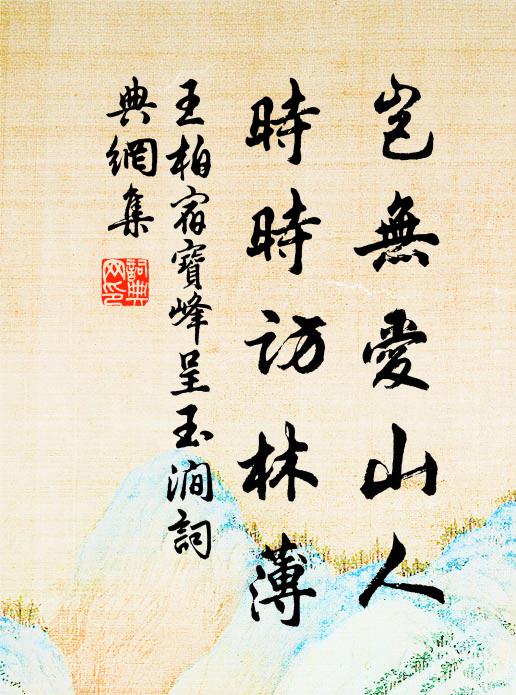 豈無愛山人
時時訪林薄
王柏宿寶峰呈玉澗詞
典網集
詞典
网印